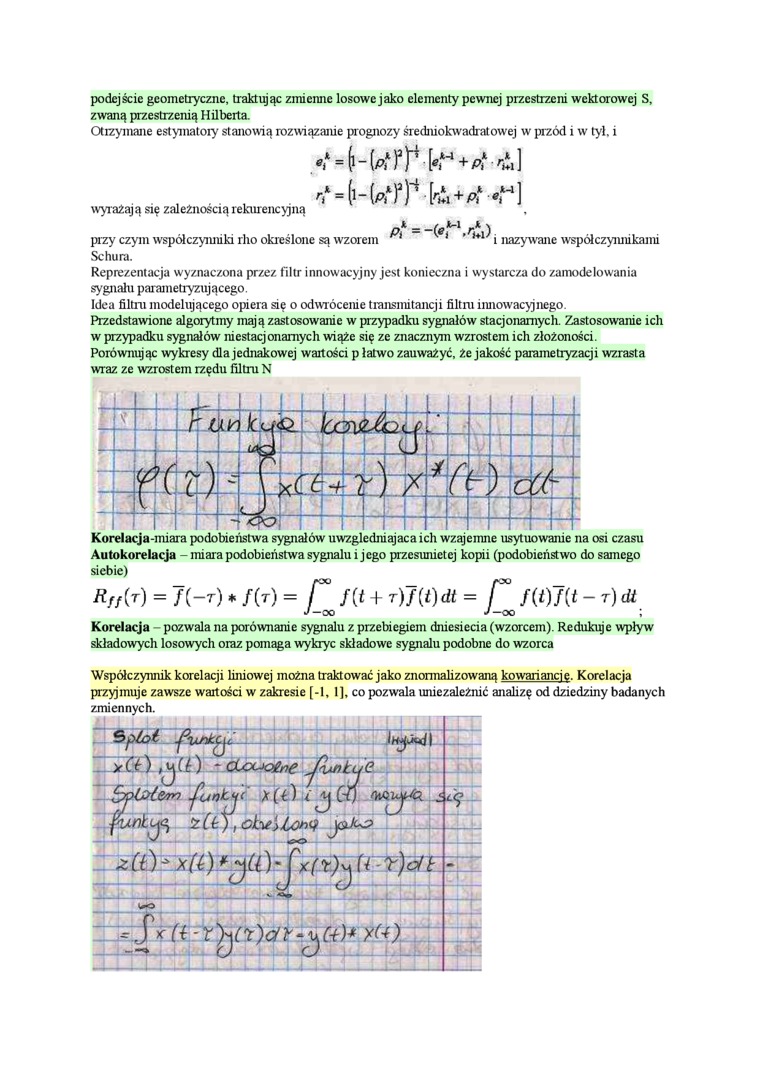 podejście geometryczne, traktując zmienne losowe jako elementy pewnej przestrzeni wektorowej S,
zwaną przestrzenią Hilberta.
Otrzymane estymatory stanowią rozwiązanie prognozy średniokwadratowej w przód i w tył, i
e_i^k = {1-(ρ_i^k)²}^{-1/2} · [e_i^{k-1} + ρ_i^k · r_{i+1}^k]
r_i^k = {1-(ρ_i^k)²}^{-1/2} · [r_{i+1}^k + ρ_i^k · e_i^{k-1}]
wyrażają się zależnością rekurencyjną ,
przy czym współczynniki rho określone są wzorem ρ_i^k = -(e_i^{k-1}, r_{i+1}^k) i nazywane współczynnikami
Schura.
Reprezentacja wyznaczona przez filtr innowacyjny jest konieczna i wystarcza do zamodelowania
sygnału parametryzującego.
Idea filtru modelującego opiera się o odwrócenie transmitancji filtru innowacyjnego.
Przedstawione algorytmy mają zastosowanie w przypadku sygnałów stacjonarnych. Zastosowanie ich
w przypadku sygnałów niestacjonarnych wiąże się ze znacznym wzrostem ich złożoności.
Porównując wykresy dla jednakowej wartości p łatwo zauważyć, że jakość parametryzacji wzrasta
wraz ze wzrostem rzędu filtru N
Funkcja korelacji
φ(τ) = ∫_{-∞}^{∞} x(t+τ) x*(t) dt
Korelacja-miara podobieństwa sygnałów uwzgledniajaca ich wzajemne usytuowanie na osi czasu
Autokorelacja – miara podobieństwa sygnalu i jego przesunietej kopii (podobieństwo do samego
siebie)
R_{ff}(τ) = f̅(−τ) * f(τ) = ∫_{−∞}^{∞} f(t + τ)f̅(t) dt = ∫_{−∞}^{∞} f(t)f̅(t − τ) dt ;
Korelacja – pozwala na porównanie sygnalu z przebiegiem dniesiecia (wzorcem). Redukuje wpływ
składowych losowych oraz pomaga wykryc składowe sygnalu podobne do wzorca
Współczynnik korelacji liniowej można traktować jako znormalizowaną kowariancję. Korelacja
przyjmuje zawsze wartości w zakresie [-1, 1], co pozwala uniezależnić analizę od dziedziny badanych
zmiennych.
Splot funkcji
x(t), y(t) - dowolne funkcje
Splotem funkcji x(t) i y(t) nazywa się
funkcją z(t), określoną jako
z(t) = x(t) * y(t) = ∫_{-∞}^{∞} x(τ) y(t-τ) dt =
= ∫_{-∞}^{∞} x(t-τ) y(τ) dτ = y(t) * x(t)